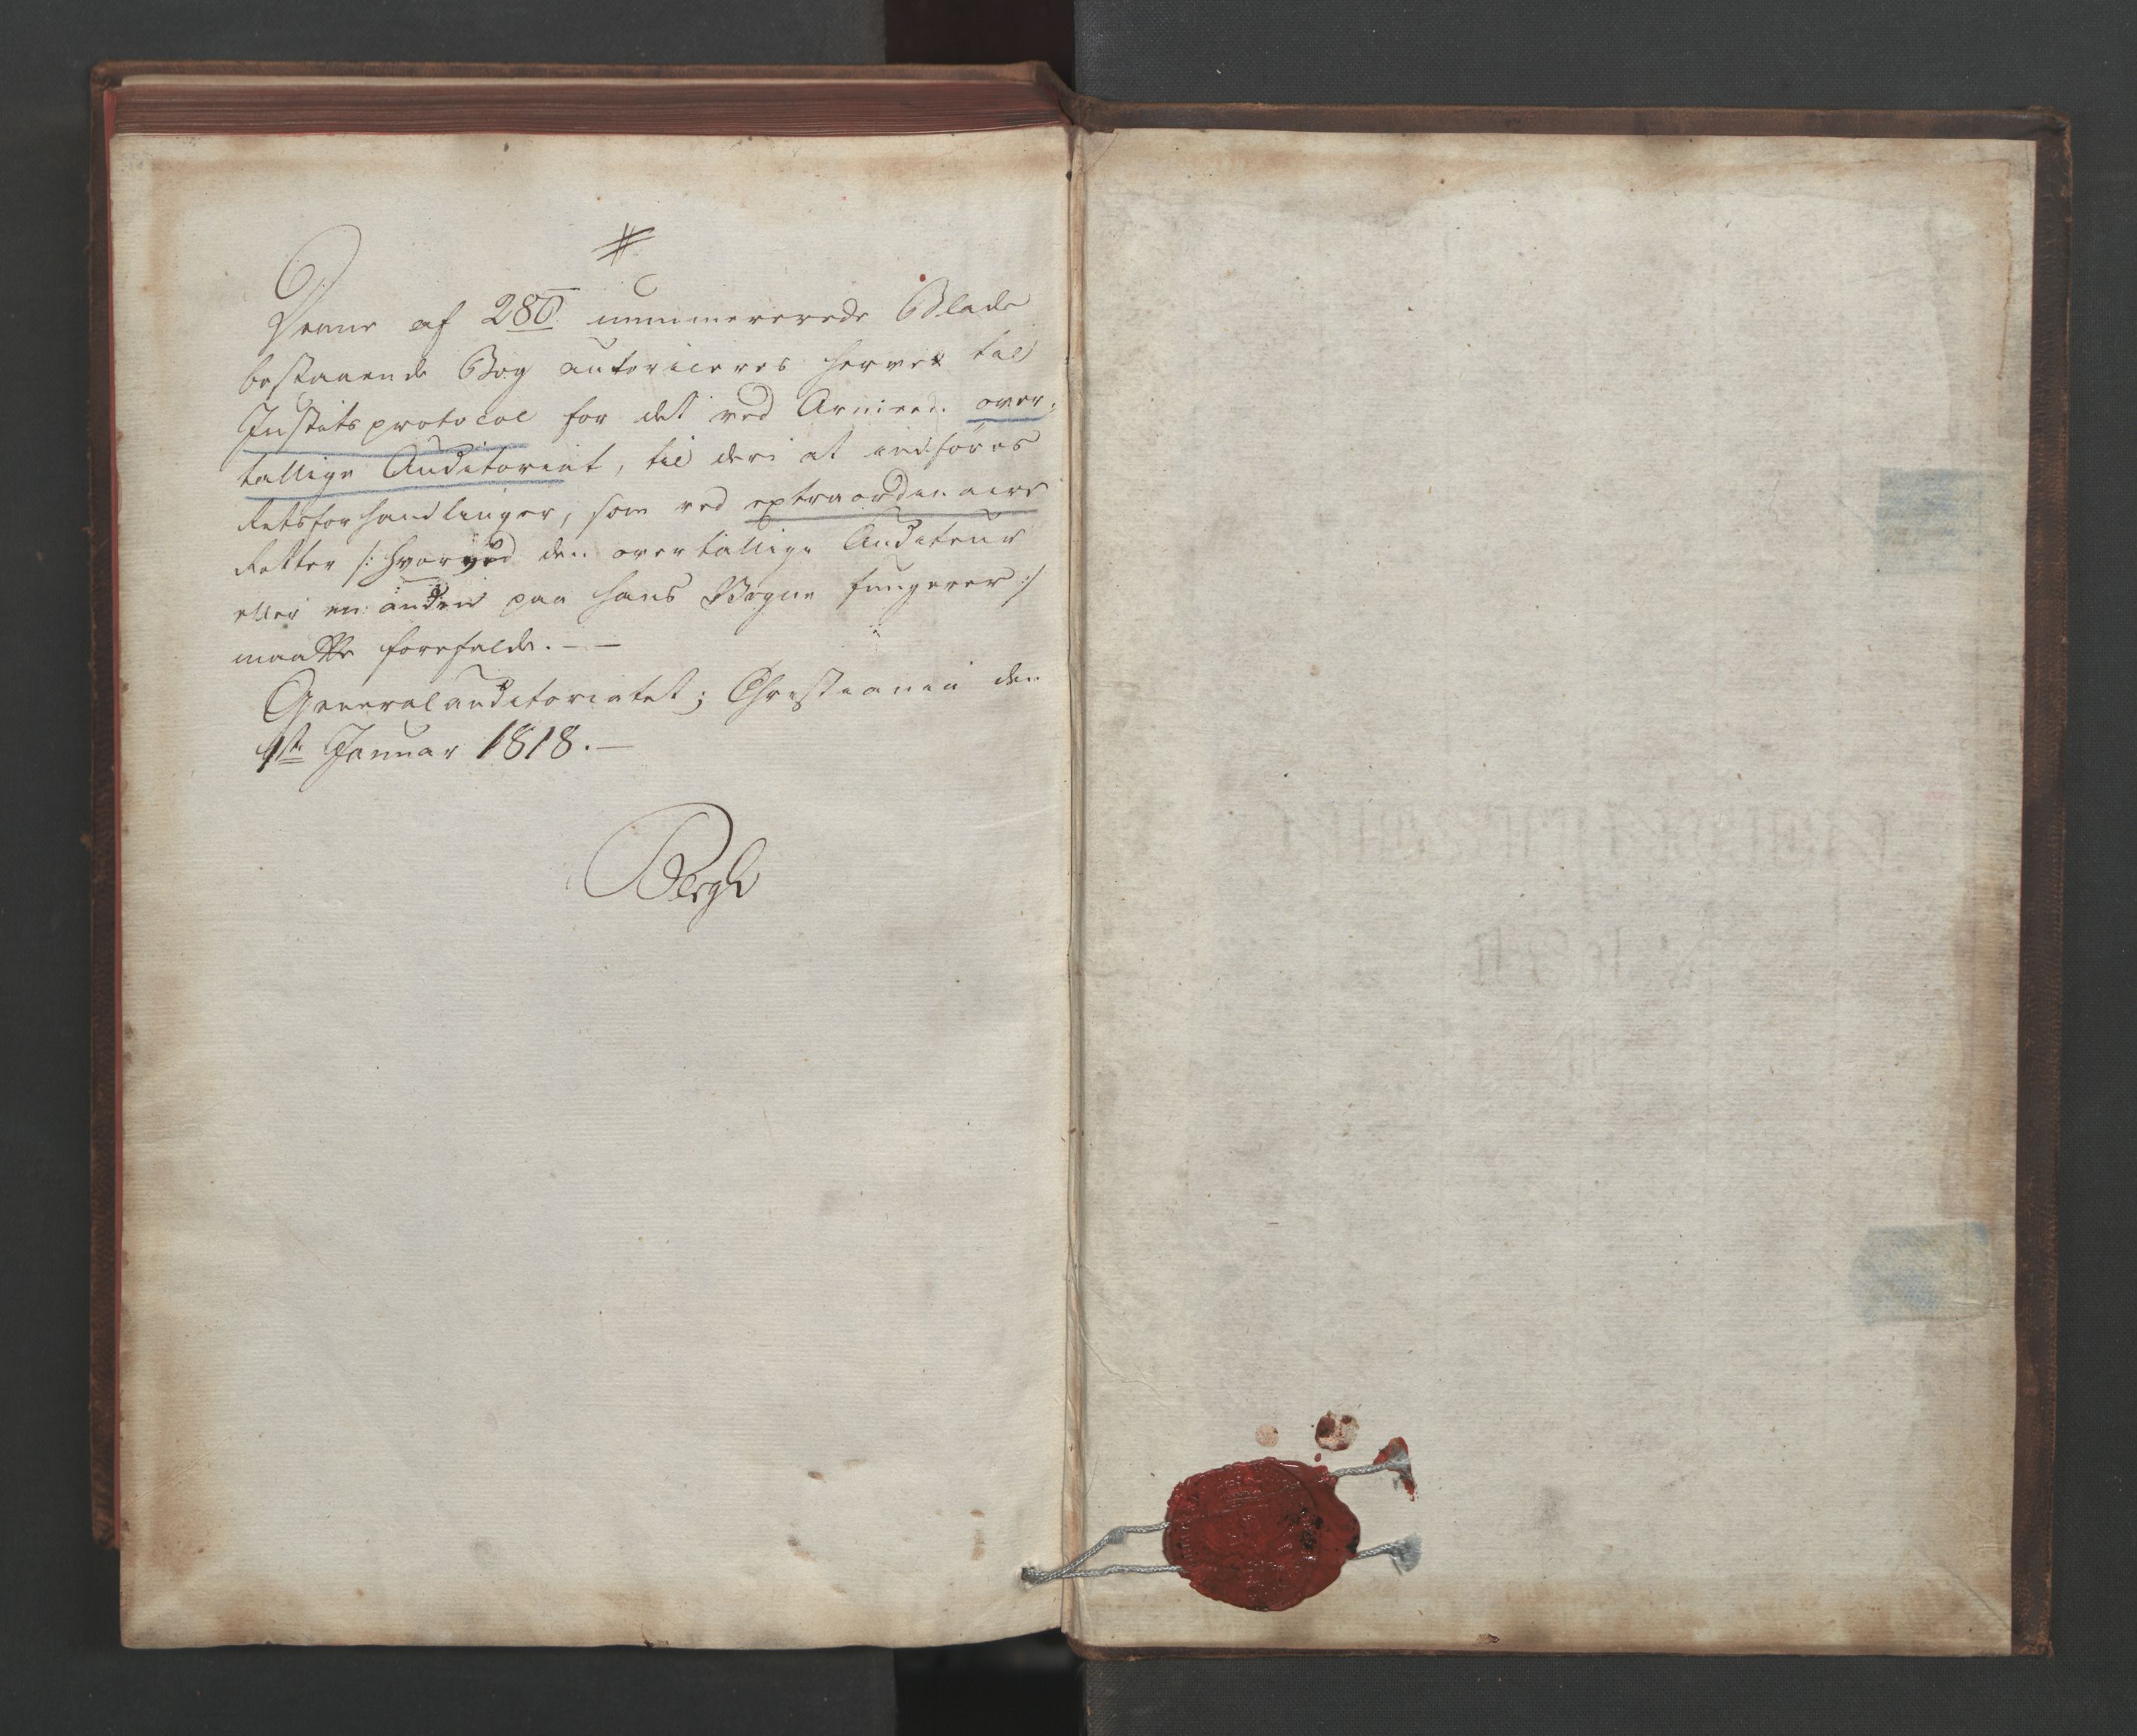 #
Denne af 280 nummererede Blade
bestaaende Bog autoriceres herved til
Justitsprotocol for det ved Armeen over-
tallige Auditoriat, til deri at indføres
Retsforhandlinger, som ved extraordinaire
Retter /: hvorved den overtallige Auditeur
eller en anden paa hans Vegne fungerer :/
maatte forefalde. — —
Generalauditoriatet; Christiania den
1ste Januar 1818. —
Bergh